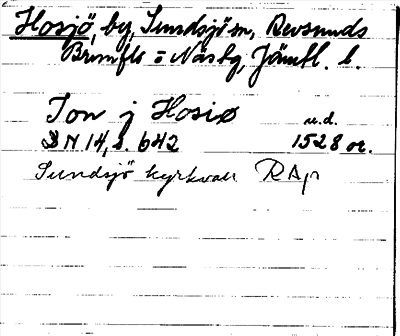 Hosjö, by, Sundsjö sn, Revsunds
Brunflo = Näs tg, Jämtl. l.
Jon j Hosiø u.d.
DN 14, s. 642 1528 or.
Sundsjö kyrkvall RAp